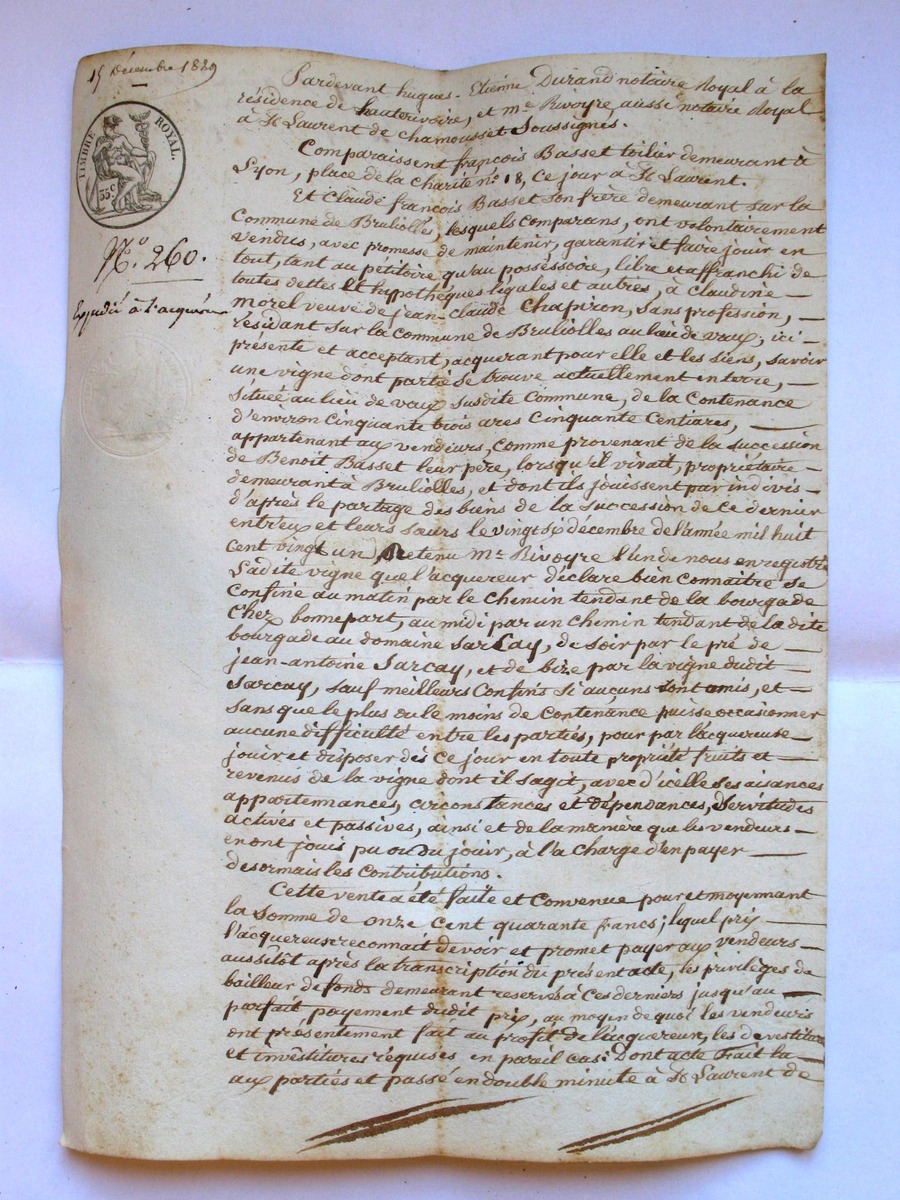 15 décembre 1829
TIMBRE ROYAL.
35c
N.o 260.
Expédié à l'acquéreur
Pardevant hugues-Etienne Durand notaire Royal à la
résidence de hauterivoire, et me Rivoyre, aussi notaire Royal
à St Laurent de chamousset Soussignés.
Comparaissent françois Basset toilier demeurant à
Lyon, place de la charité no 18, ce jour à St Laurent.
Et Claude françois Basset son frère demeurant sur la
Commune de Brulioles, lesquels comparans, ont volontairement
vendus, avec promesse de maintenir, garantir et faire jouir en
tout, tant au pétitoire qu'au posséssoire, libre et affranchi de
toutes dettes et hypothéques légales et autres, à Claudine —
morel veuve de jean-claude Chapiron, sans profession, —
résidant sur la Commune de Bruliolles au lieu de vaux, ici —
présente et acceptant, acquerant pour elle et les siens, savoir
une vigne dont partie se trouve actuellement en terre, —
Située au lieu de vaux susdite Commune, de la Contenance
d'environ Cinquante trois ares Cinquante Centiares, —
appartenant aux vendeurs, comme provenant de la succession
de Benoit Basset leur père, lorsqu'il vivait, propriétaire —
demeurant à Bruliolles, et dont ils jouissent par indivis —
d'après le partage des biens de la succession de ce dernier
entr'eux et leurs sœurs le vingt six décembre de l'année mil huit
cent vingt un, Retenu me Rivoyre l'un de nous enregistré
Ladite vigne que l'acquereur déclare bien connaître se
Confine au matin par le chemin tendant de la bourgade
Chez bonnepart, au midi par un chemin tendant de la dite
bourgade au domaine sarcay, de soir par le pré de —
jean-antoine Sarcay, et de bize par la vigne dudit —
Sarcay, sauf meilleurs Confins si aucuns sont omis, et —
sans que le plus ou le moins de Contenance puisse occasionner
aucune difficulté entre les parties, pour par l'acquereuse —
jouir et disposer dès ce jour en toute propriété fruits et —
revenus de la vigne dont il sagit, avec d'icelle ses aisances
appartennances, circonstances et dépendances, Servitudes
actives et passives, ainsi et de la manière que les vendeurs —
en ont jouis pu ou du jouir, à l'a charge d'en payer —
desormais les Contributions.
Cette vente a été faite et Convenue pour et moyennant
la somme de onze cent quarante francs; lequel prix —
l'acquereuse reconnait devoir et promet payer aux vendeurs —
aussitôt après la transcription du présent acte, les privilèges de
bailleur de fonds demeurant reservés à ces derniers jusqu'au —
parfait, payement dudit prix, au moyen de quoi les vendeurs
ont présentement fait au profit de l'acquereur, les devestitures
et investitures requises en pareil cas. Dont acte Fait lu
aux parties et passé en double minute à St Laurent de